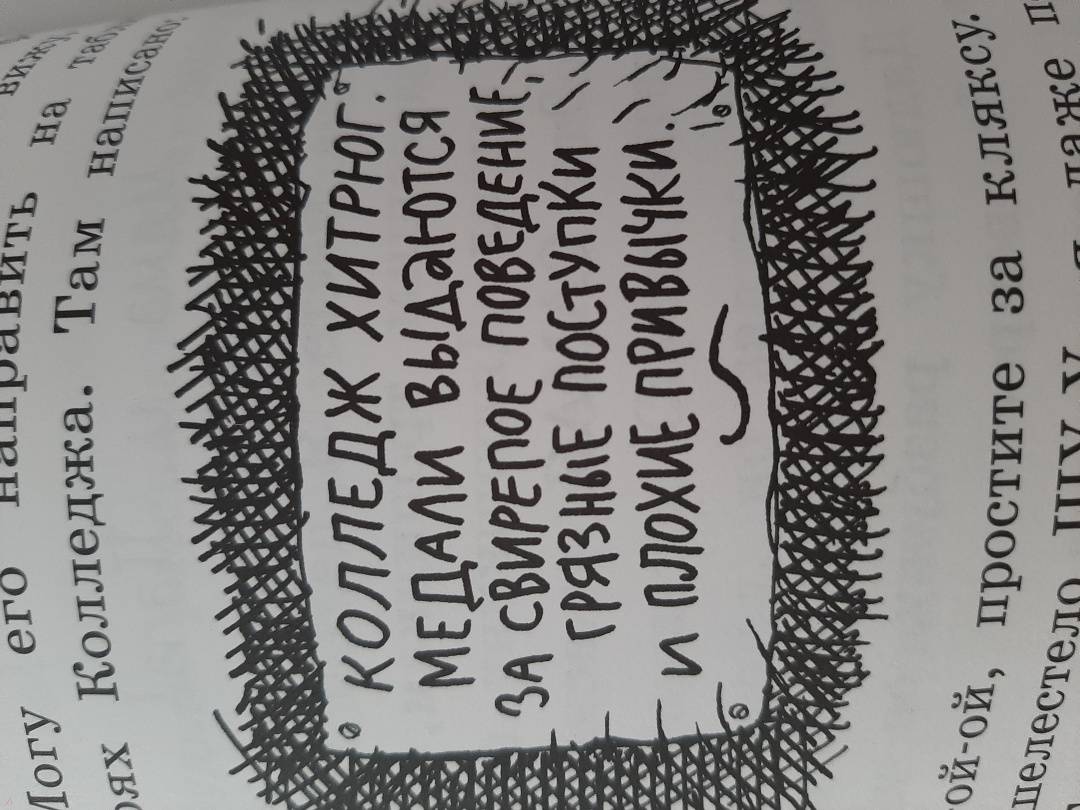 вижу,
Могу его направить на таб
рях Колледжа. Там написано:
КОЛЛЕДЖ ХИТРЮГ.
МЕДАЛИ ВЫДАЮТСЯ
ЗА СВИРЕПОЕ ПОВЕДЕНИЕ,
ГРЯЗНЫЕ ПОСТУПКИ
И ПЛОХИЕ ПРИВЫЧКИ.
ой-ой, простите за кляксу.
шелестело даже п